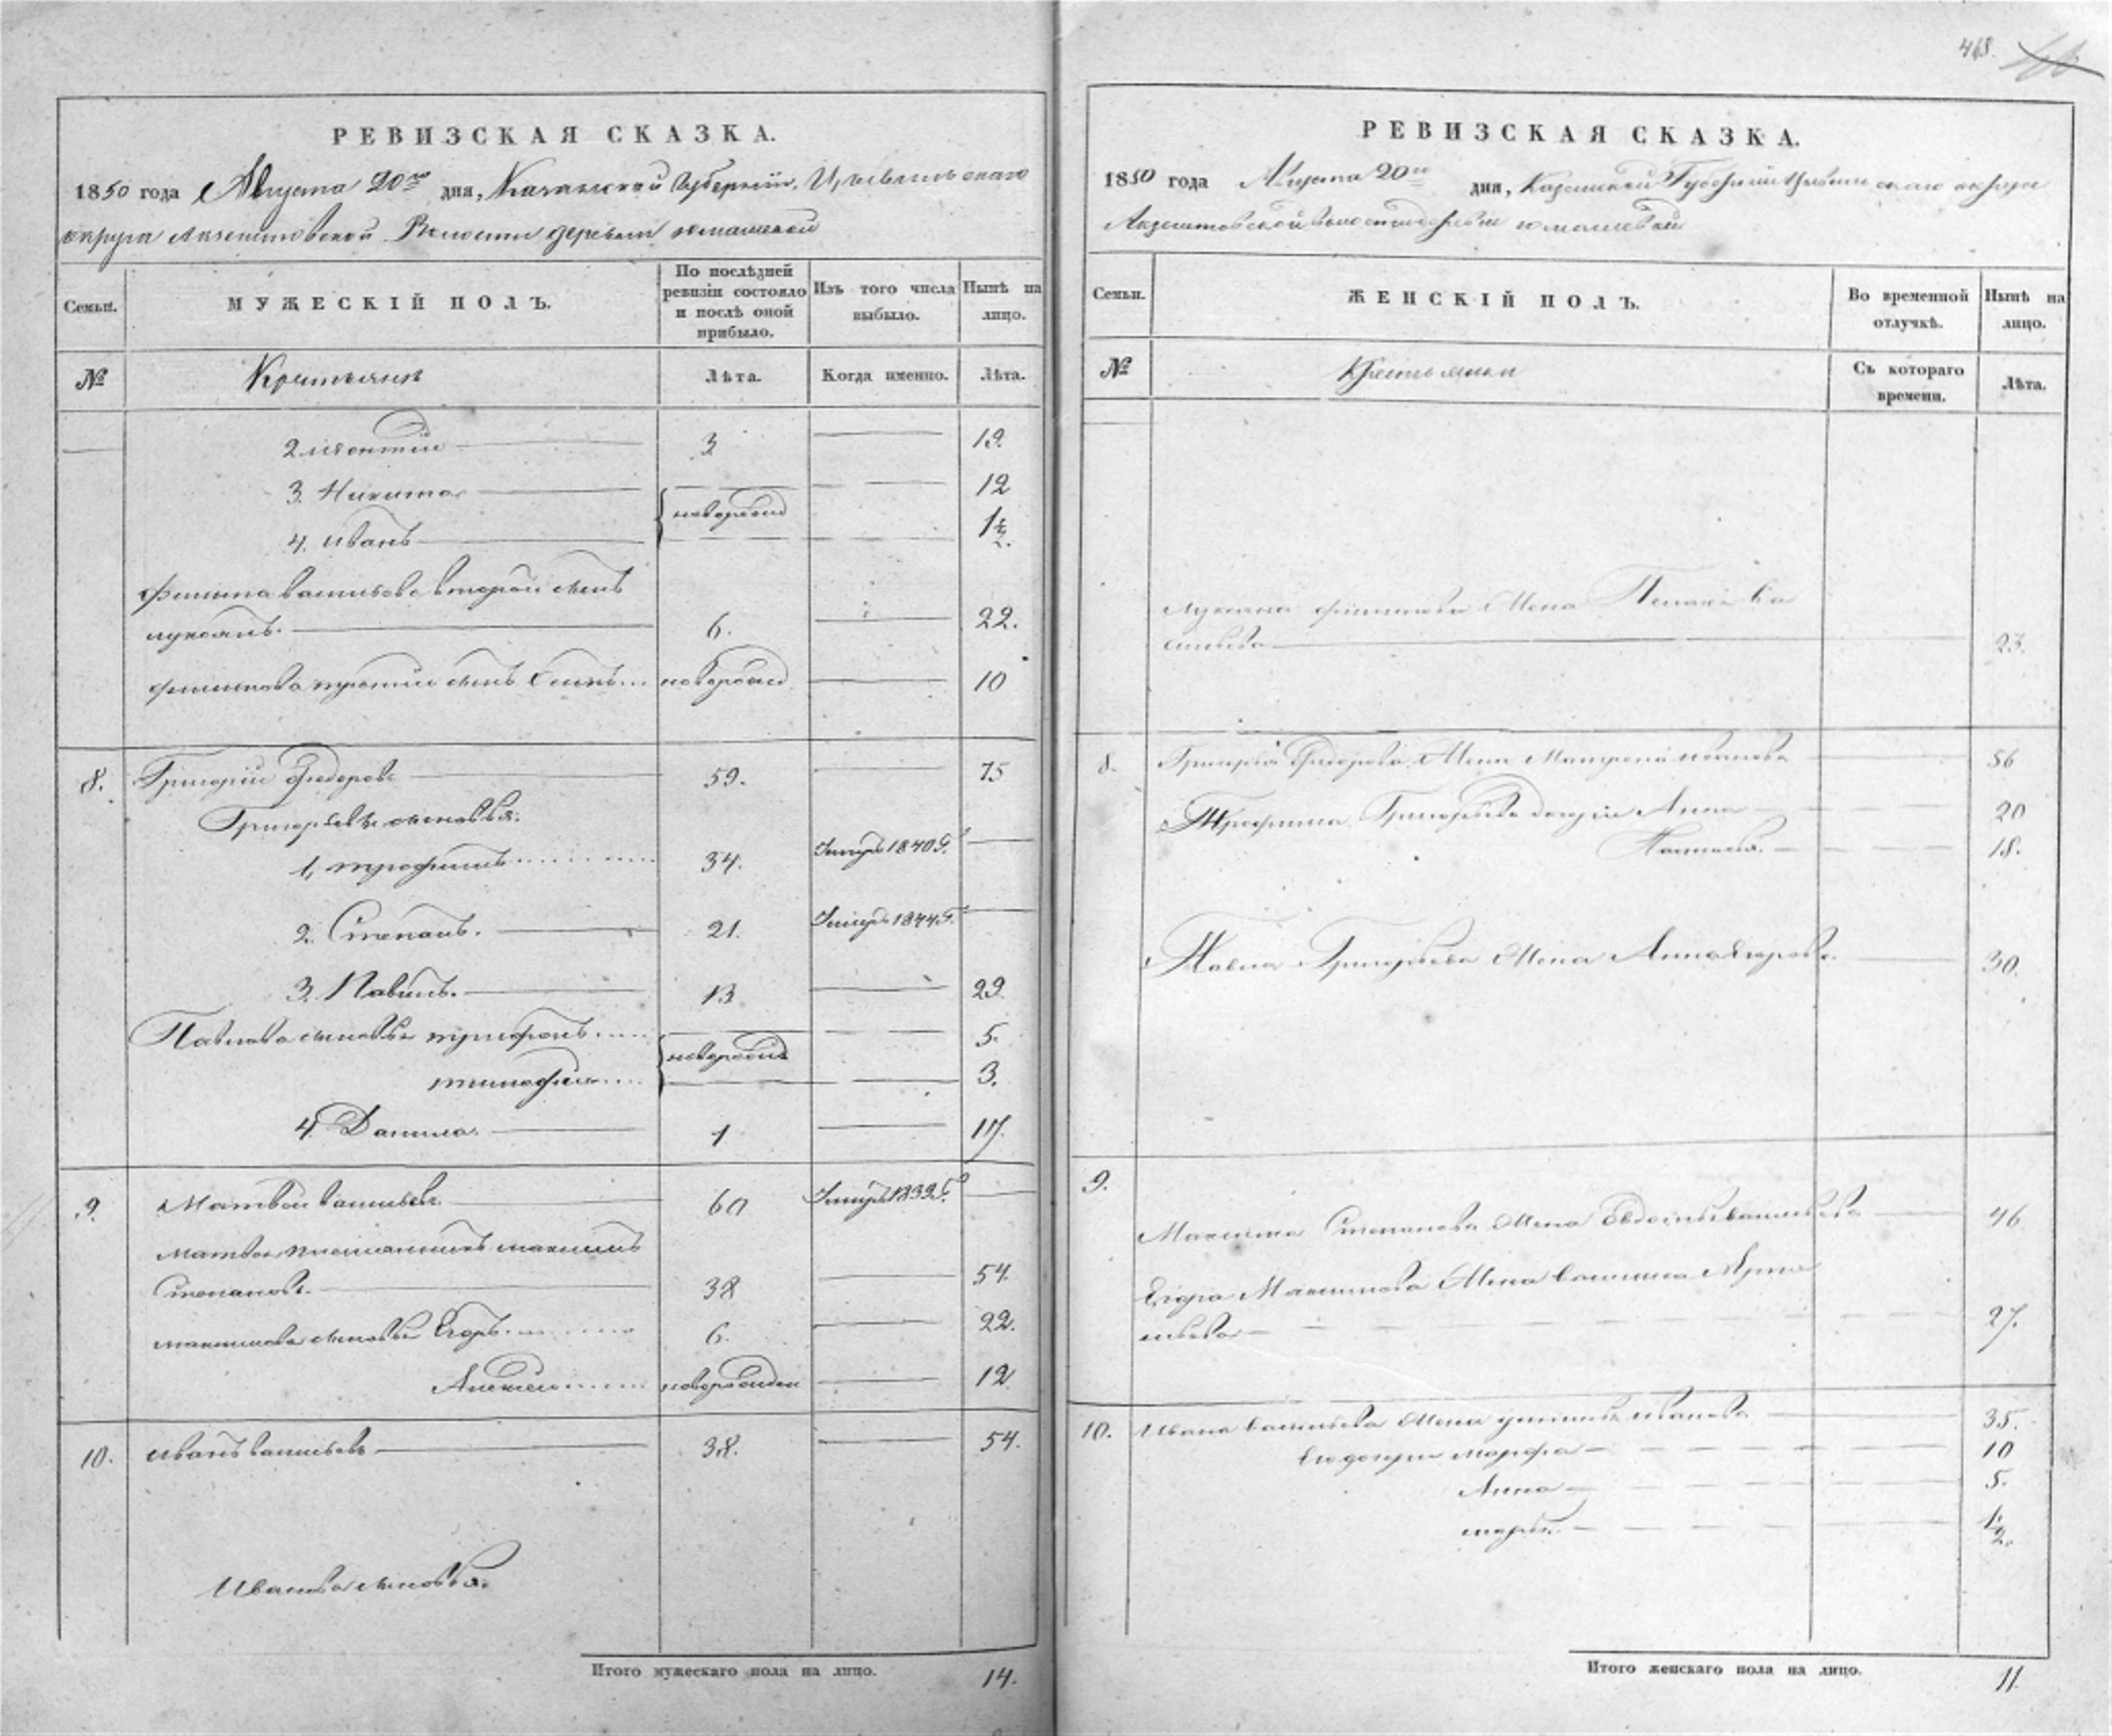 РЕВИЗСКАЯ СКАЗКА.
1850 года Августа 20го дня, Казанской Губернiи, Цывильскаго
округа Акзегитовской Волости деревни Юмашевой
Семьи.
МУЖЕСКIЙ ПОЛЪ.
По послѣдней ревизiи состояло и послѣ оной прибыло.
Изъ того числа выбыло.
Нынѣ на лицо.
№
Крестьяне
Лѣта.
Когда именно.
Лѣта.
2 Леонтiй 3 19.
3. Никита 12
новорожд
4. Иванъ 1½.
Филипа Васильева второй сынъ
Лукоянъ. 6. 22.
Филипова третiй сынъ Осипъ... новорожд 10
8. Григорiй Федоровъ 59. 75
Григорьевы сыновья.
1, Трофимъ 34. Умеръ 1840 г.
2. Степанъ. 21. Умеръ 1844 г.
3. Павилъ. 13 29
Павлова сыновья Трифонъ..... 5.
новорожд
Тимофей.... 3.
4. Данила 1 17.
9. Матвей Васильевъ 60 Умеръ 1839 г.
Матвея племянникъ Максимъ
Степановъ. 38 54.
Максимова сыновья Егоръ. 6. 22.
Алексей....... новорожден 12
10. Иванъ Васильевъ 38. 54.
Иванова сыновья.
Итого мужескаго пола на лицо. 14.
468.
РЕВИЗСКАЯ СКАЗКА.
1850 года Августа 20го дня, Казанской Губернiи Цывильскаго округа
Акзегитовской волости деревни Юмашевой
Семьи.
ЖЕНСКIЙ ПОЛЪ.
Во временной отлучкѣ.
Нынѣ на лицо.
№
Крестьянки
Съ котораго времени.
Лѣта.
Лукояна Филипова жена Ва
сильева 23.
8. Григорья Федорова жена Матрена Иванова 56
Трофима Григорьева дочери Анна 20
18.
Павла Григорьева жена Анна Егорова 30.
9.
Максима Степанова жена Евдокья Васильева 46
Егора Максимова жена Василиса
27.
10. Ивана Васильева жена Устинья Иванова 35.
Его дочери Марфа 10
Анна 5.
Марья. 1½.
Итого женскаго пола на лицо. 11.